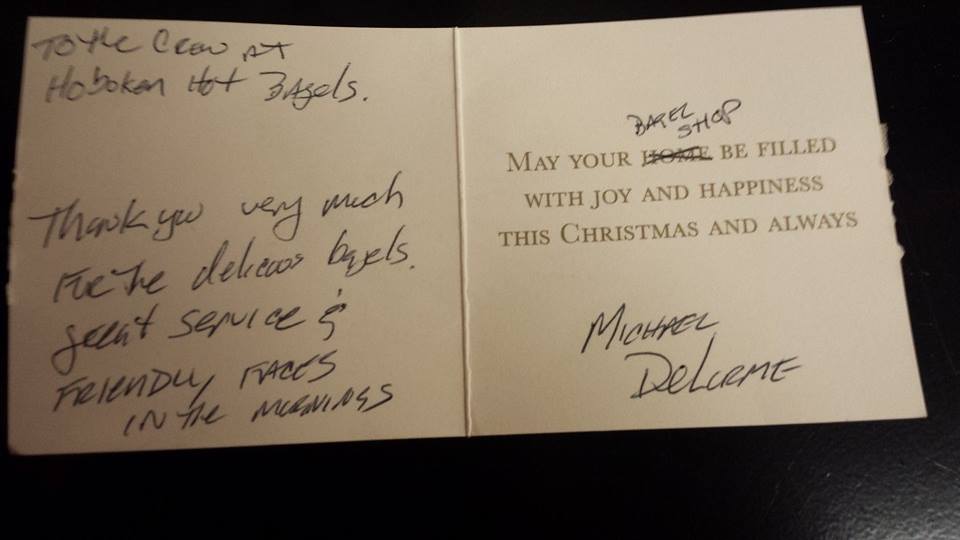 To the Crew at
Hoboken Hot Bagels.
Thank you very much
For the delicious bagels.
great service &
FRIENDLY FACES
IN THE MORNINGS
BAGEL
SHOP
MAY YOUR HOME BE FILLED
WITH JOY AND HAPPINESS
THIS CHRISTMAS AND ALWAYS
MICHAEL
DELORME